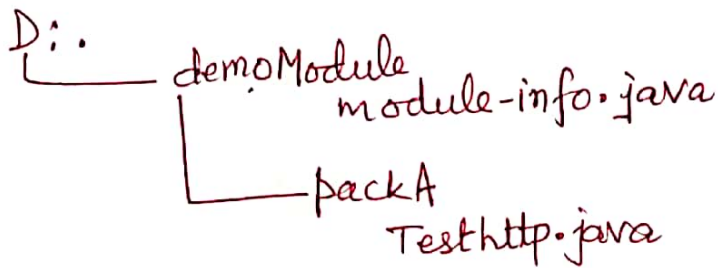 D:.
demoModule
module-info.java
packA
Testhttp.java